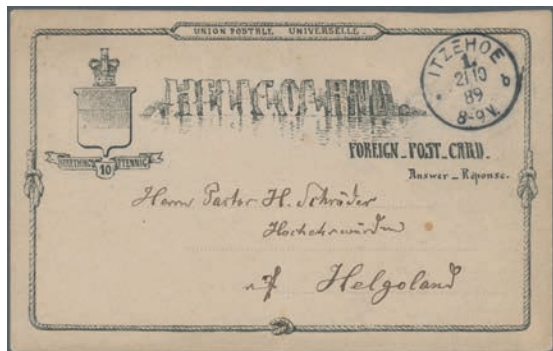 UNION POSTALE UNIVERSELLE.
HELIGOLAND
ITZEHOE
1.
21 10
89
8-9N.
b
FARTHING 10 PFENNIG
FOREIGN_POST_CARD.
Answer_Réponse.
Herrn Pastor H. Schröder
Hochehrwürden
Helgoland